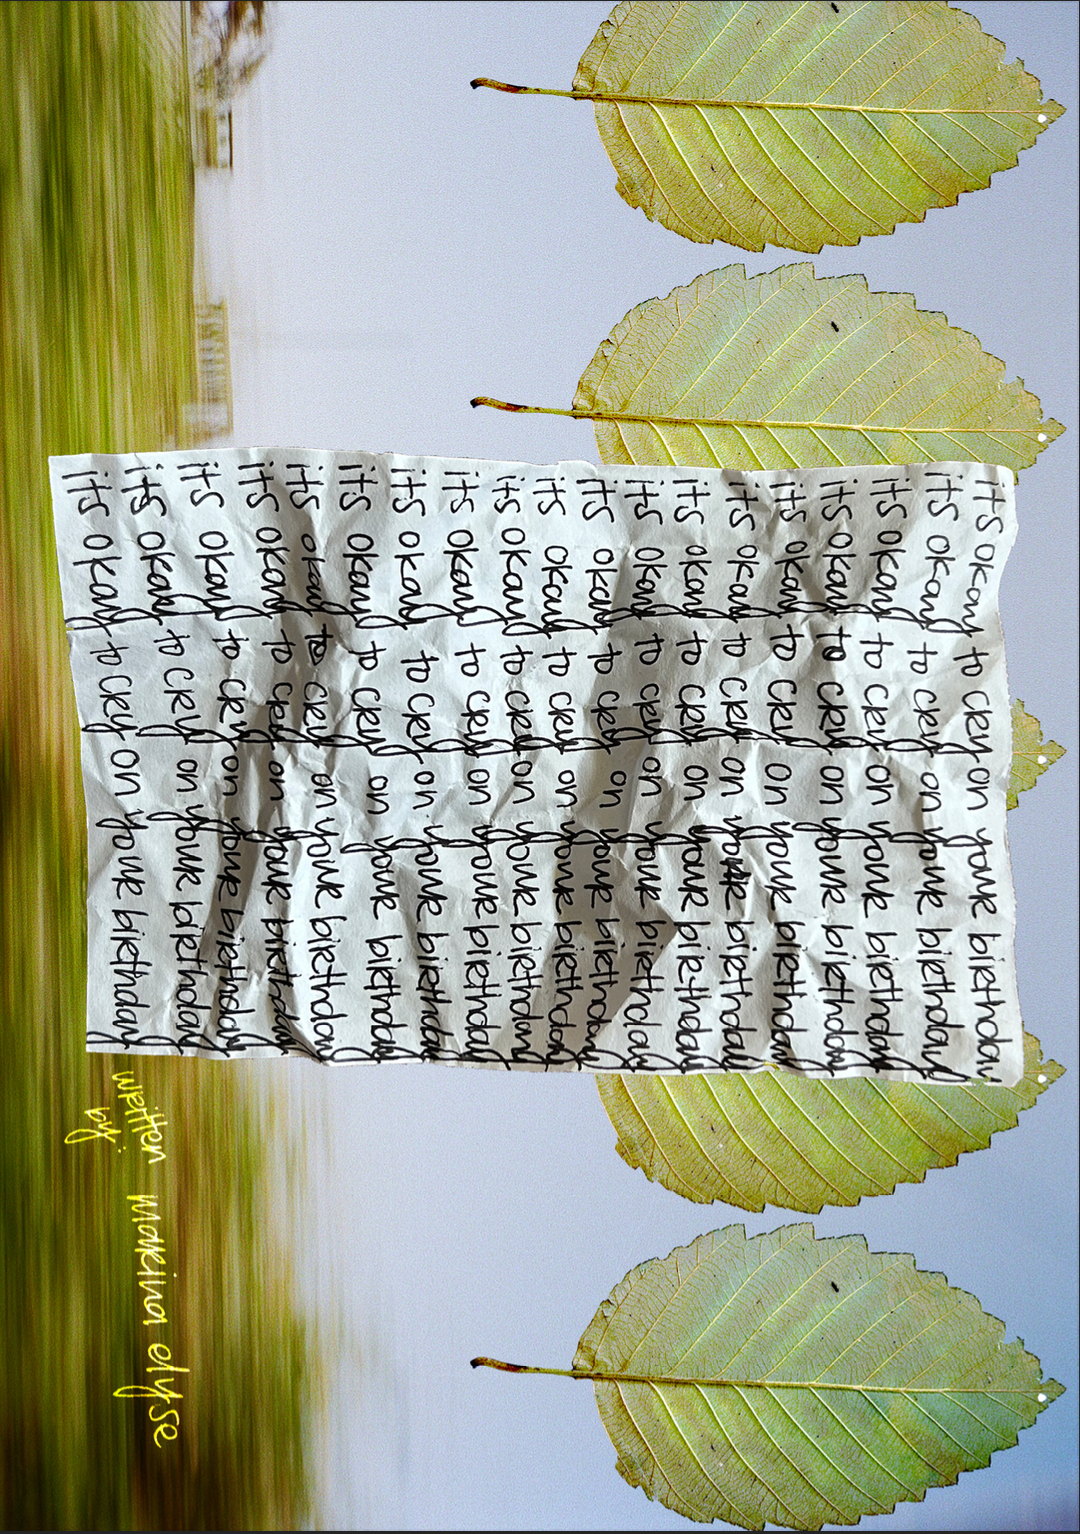 its okay to cry on your birthday
its okay to cry on your birthday
its okay to cry on your birthday
its okay to cry on your birthday
its okay to cry on your birthday
its okay to cry on your birthday
its okay to cry on your birthday
its okay to cry on your birthday
its okay to cry on your birthday
its okay to cry on your birthday
its okay to cry on your birthday
its okay to cry on your birthday
its okay to cry on your birthday
its okay to cry on your birthday
its okay to cry on your birthday
its okay to cry on your birthday
its okay to cry on your birthday
its okay to cry on your birthday
its okay to cry on your birthday
written
by:
marina elyse